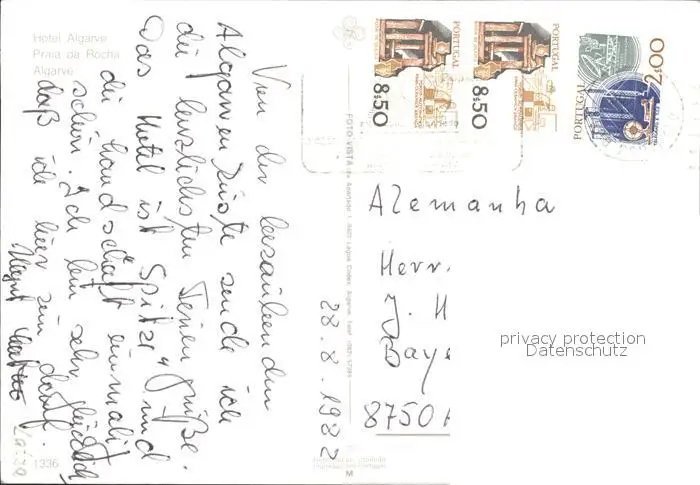 Hotel Algarve
Praia da Rocha
Algarve
Von der bezaubernden
Algarven Küste sende ich
die herzlichsten Feriengrüße.
Das Hotel ist "Spitze" und
die Landschaft einmalig
schön. Ich bin sehr glücklich
daß ich hier sein darf.
28.8.1982
1336
FOTO-VISTA
M
PORTUGAL
8$50
PORTUGAL
8$50
PORTUGAL
2$00
Alemanha
Herr.
J. H
Baye
8750
privacy protection
Datenschutz